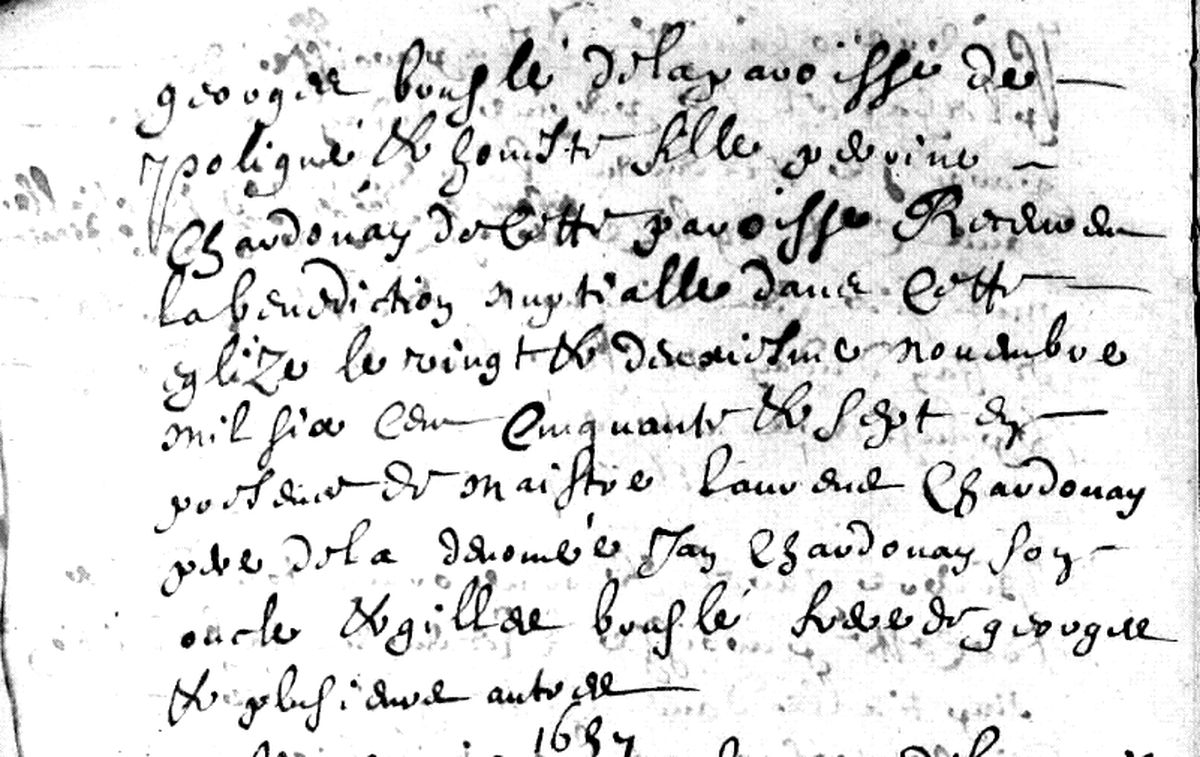 georges bouslé de la paroisse de
poligné & honneste fille perrine
Chardonay de Cette paroisse Receuren
la benediction nuptialle dans Cette
eglize le vingt & deuxiesme novembre
mil six Cen Cinquante & sept en
presence de maistre laurens Chardonay
pere de la denomée Jan Chardonay son
oncle & gilles bouslé frere de georges
& plusieurs autres
1657